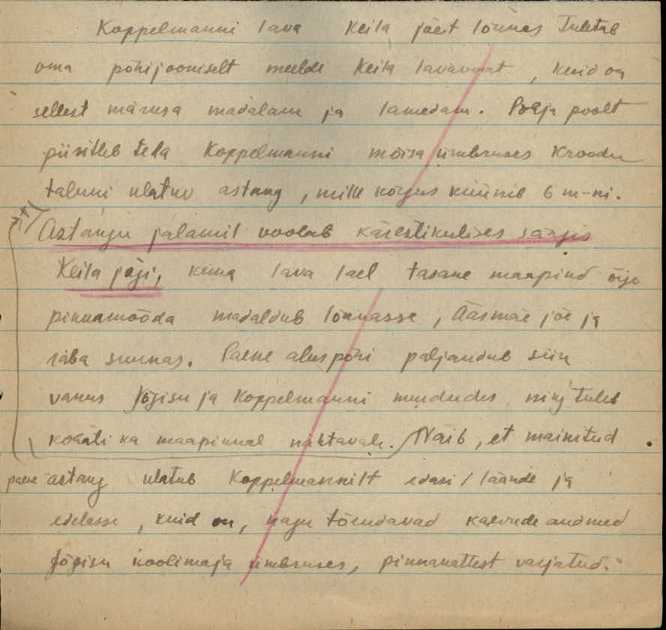 Koppelmanni lava Keila jõest lõunas tuletab
oma põhijooniselt meelde Keila lavamaat, kuid on
sellest märksa madalam ja lamedam. Põhja poolt
piiritleb teda Koppelmanni mõisa ümbruses Kroodu
taluni ulatuv astang, mille kõrgus küünib 6 m-ni.
Astangu jalamil voolab kärestikulises sängis
Keila jõgi, kuna lava lael tasane maapind õige
pinnamööda madaldub lõunasse, Ääsmäe jõe ja
raba suunas. Paene aluspõhi paljandub siin
vanus Jõgisu ja Koppelmanni murdudes ning tuleb
kohati ka maapinnal nähtavale. Näib, et mainitud
paene astang ulatub Koppelmannilt edasi läände ja
edelasse, kuid on, nagu tõendavad kaevude andmed
Jõgisu koolimaja ümbruses, pinnakattest varjatud."